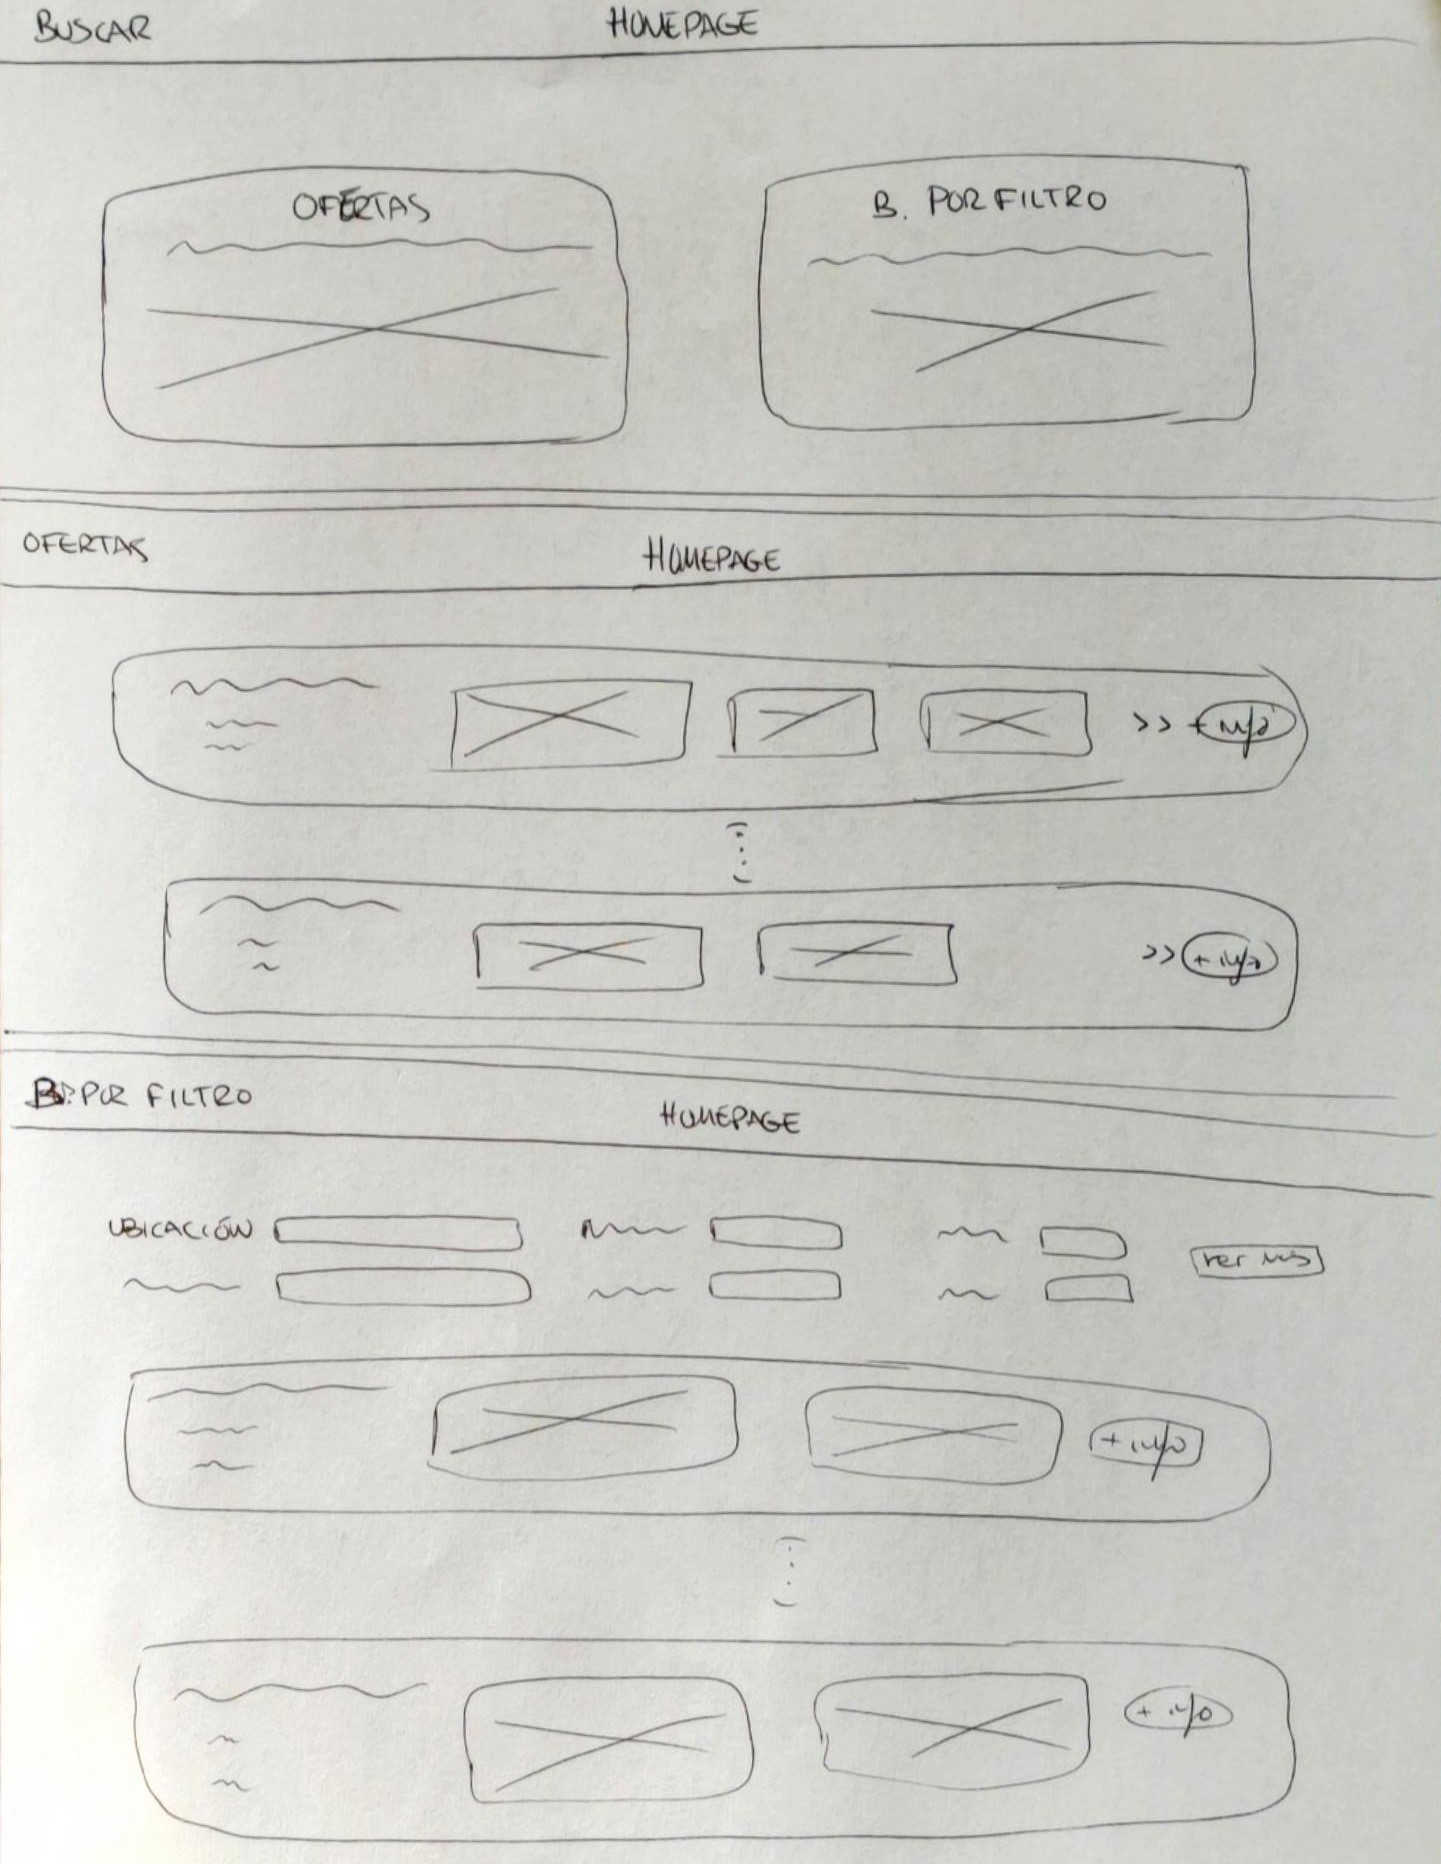 BUSCAR HOMEPAGE
OFERTAS B. POR FILTRO
OFERTAS HOMEPAGE
>> + info
>> + info
B. POR FILTRO HOMEPAGE
UBICACIÓN
ver más
+ info
+ info